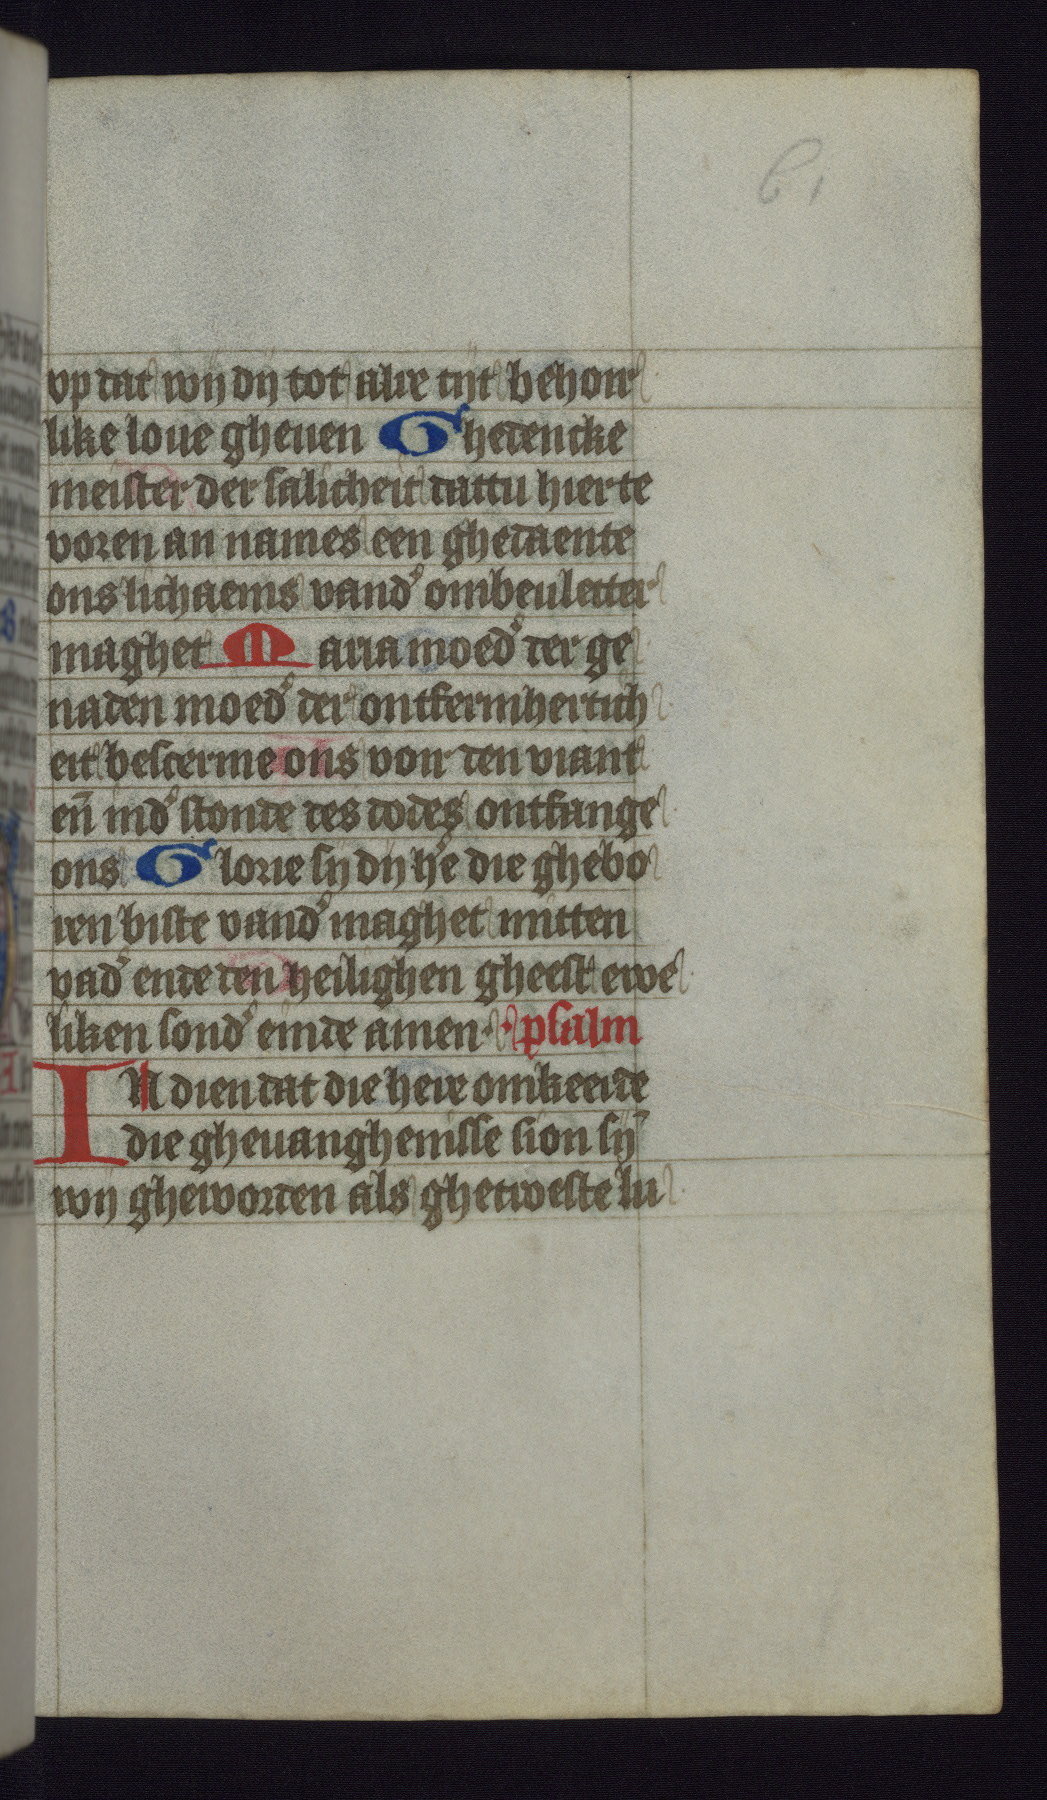 61
vp dat wij dij tot alre tijt behoir
like loue gheuen Ghedencke
meister der salicheit dattu hier te
voren an names een ghedaente
ons lichaems vand' ombeuletter
maghet Maria moed' der ge
naden moed' der ontfermhertich
eit bescerme ons voir den viant
en̄ ind' stonde des dodes ontfange
ons Glorie sij dij h'e die ghebo
ren biste vand' maghet mitten
vad' ende den heilighen gheest ewe
liken sond' einde amen · psalm
IN dien dat die here omkeerde
die gheuanghenisse sion sij
wij gheworden als ghetroeste lu